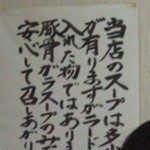 当店のスープは多少
が有りますがラード
入れた物ではありま
豚骨ガラスープのみで
安心して召しあがり